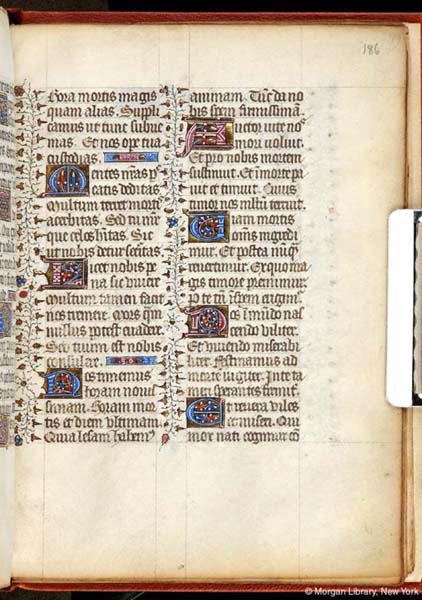 186
hora mortis magis
quam alias. Suppli
camus ut tunc subue
nias. Et nos ope tua
custodias.
entes nr̄as p̄
ratis deditas
multum terret mortis
acerbitas. Sed tu nūc
que celes hītas. Sic
ut nobis detur securitas.
icet nobis p̄
nia sic dicier
multum tamen facit
nos tremere. mors quā
nullus potest euadere.
Sed tuum est nobis
consulere.
os timemus
horam nouis
simam. horam mor
tis et diem ultimam.
Quia lesam habem⁹
animam. Tūc da no
bis spem firmissimā.
uctor uite no
mori uoluit.
Et pro nobis mortem
sustinuit. Et in morte pa
uit et timuit. Cuius
timor nos multū terruit.
uiam mortis
om̄s ingredi
mur. Et postea nūq̄
reuertimur. Et quo ma
gis timore premimur.
Po te tū in spem erigim⁹.
os in mūdo nas
cendo uiliter.
Et uiuendo miserabi
liter. festinamus ad
mortē iugiter. In te ta
men sperantes firmit̄.
t reuera uiles
et miseri. Qui
mor nati cogimur cō
© Morgan Library, New York